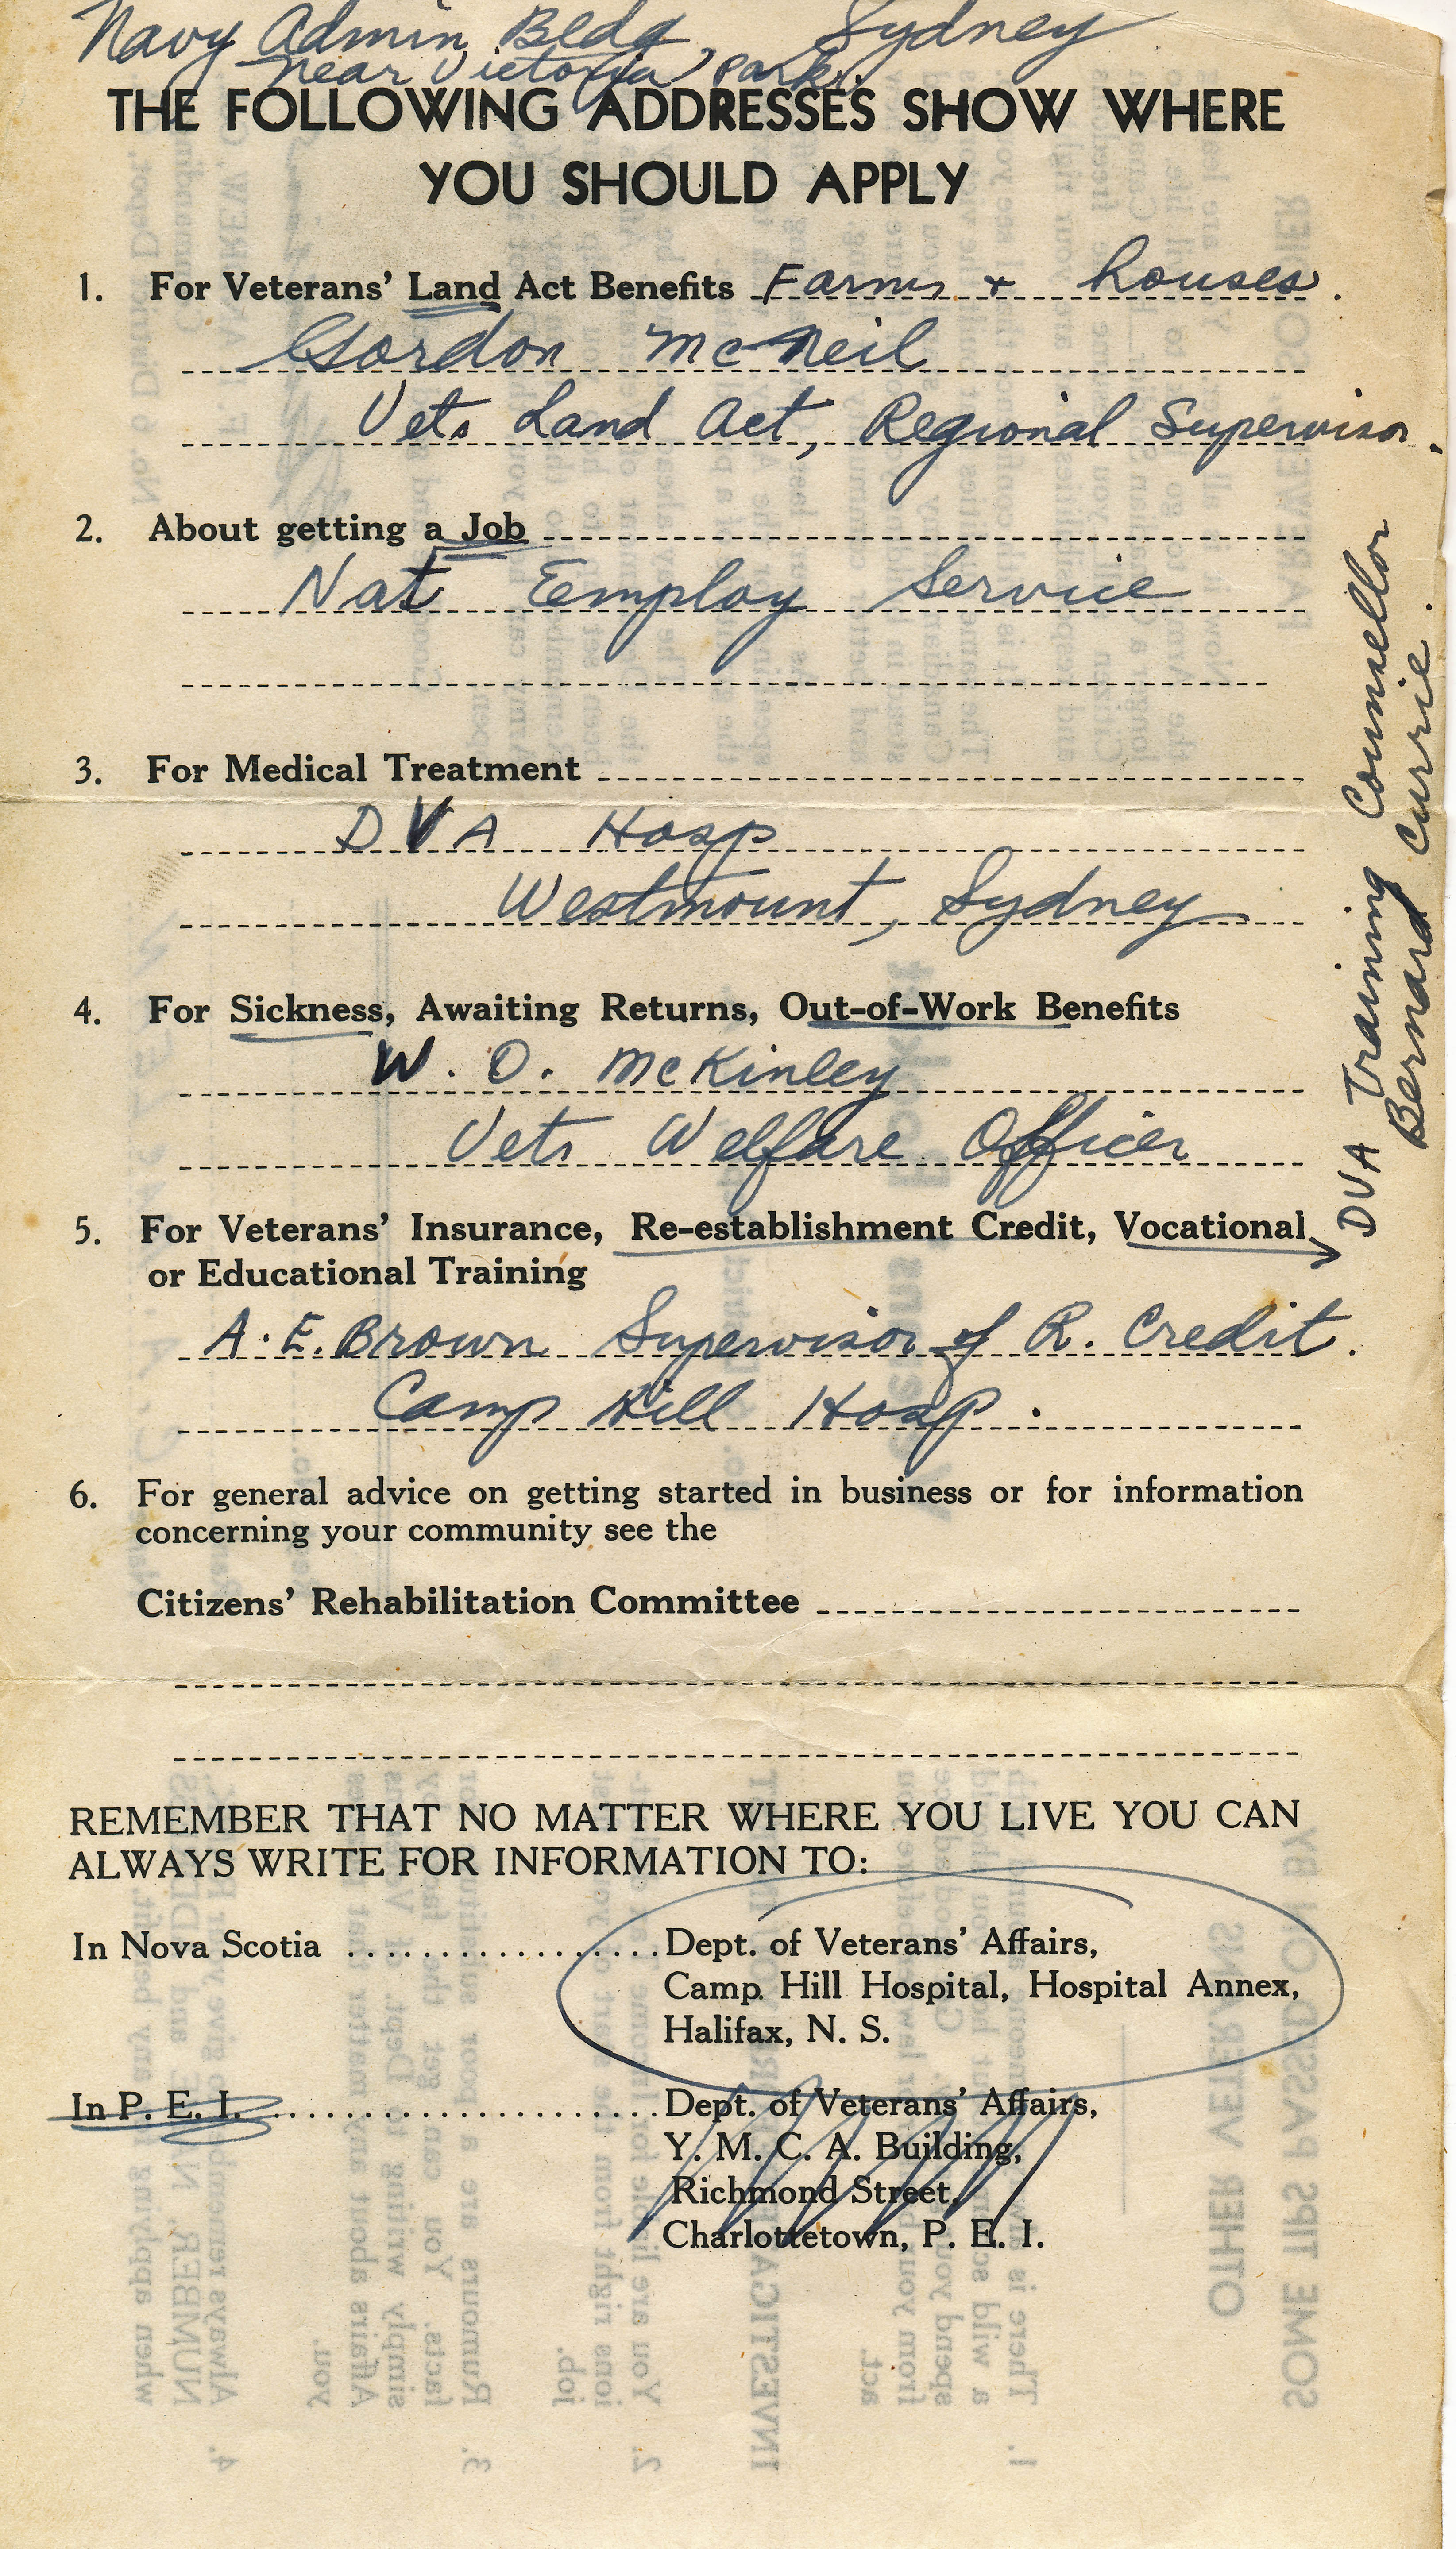 Navy Admin Bldg, Sydney
near Victoria Park.
THE FOLLOWING ADDRESSES SHOW WHERE
YOU SHOULD APPLY
1. For Veterans' Land Act Benefits Farms + houses.
Gordon McNeil
Vets Land Act, Regional Supervisor.
2. About getting a Job
Nat Employ Service
3. For Medical Treatment
DVA Hosp
Westmount, Sydney
4. For Sickness, Awaiting Returns, Out-of-Work Benefits
W. O. McKinley
Vets Welfare Officer
5. For Veterans' Insurance, Re-establishment Credit, Vocational
or Educational Training
DVA Training Counsellor
Bernard Currie.
A. E. Brown Supervisor of R. Credit.
Camp Hill Hosp.
6. For general advice on getting started in business or for information
concerning your community see the
Citizens' Rehabilitation Committee
REMEMBER THAT NO MATTER WHERE YOU LIVE YOU CAN
ALWAYS WRITE FOR INFORMATION TO:
In Nova Scotia .................. Dept. of Veterans' Affairs,
Camp Hill Hospital, Hospital Annex,
Halifax, N. S.
In P. E. I. ...................... Dept. of Veterans' Affairs,
Y. M. C. A. Building,
Richmond Street,
Charlottetown, P. E. I.